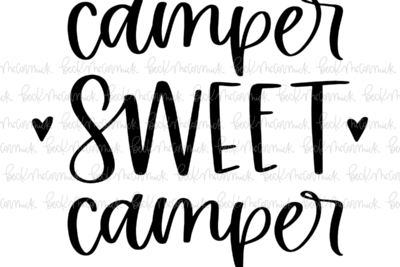 camper
SWEET
camper